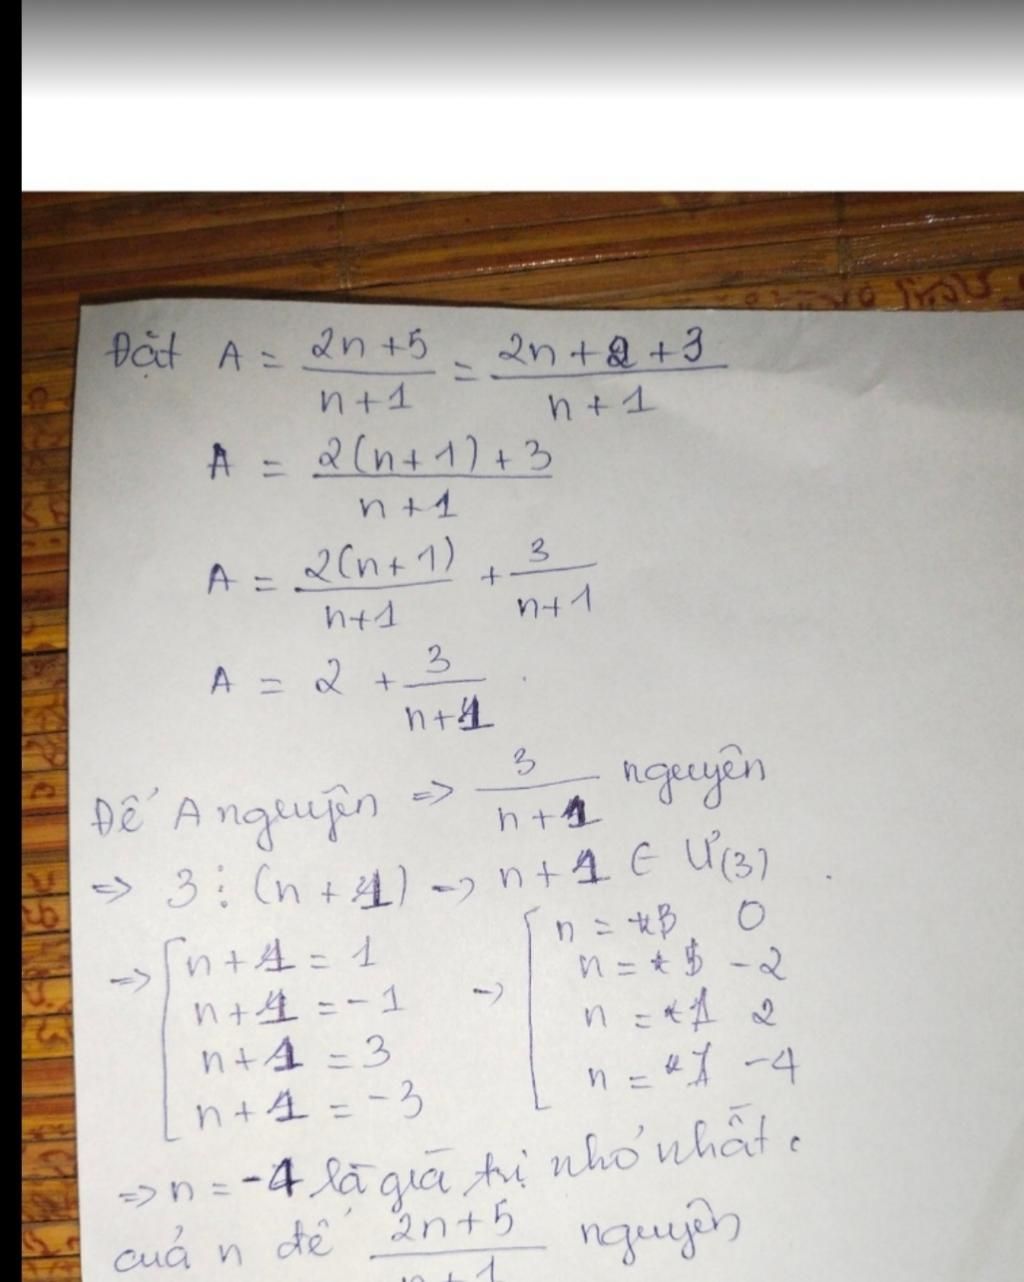 Đặt A = \frac{2n+5}{n+1} = \frac{2n+2+3}{n+1}
A = \frac{2(n+1)+3}{n+1}
A = \frac{2(n+1)}{n+1} + \frac{3}{n+1}
A = 2 + \frac{3}{n+1}.
Để A nguyên => \frac{3}{n+1} nguyên
=> 3 ⋮ (n+1) -> n+1 ∈ Ư(3).
=> [ n+1 = 1 -> [ n = 0
n+1 = -1 n = -2
n+1 = 3 n = 2
n+1 = -3 n = -4
=> n = -4 là giá trị nhỏ nhất.
của n để \frac{2n+5}{n+1} nguyên